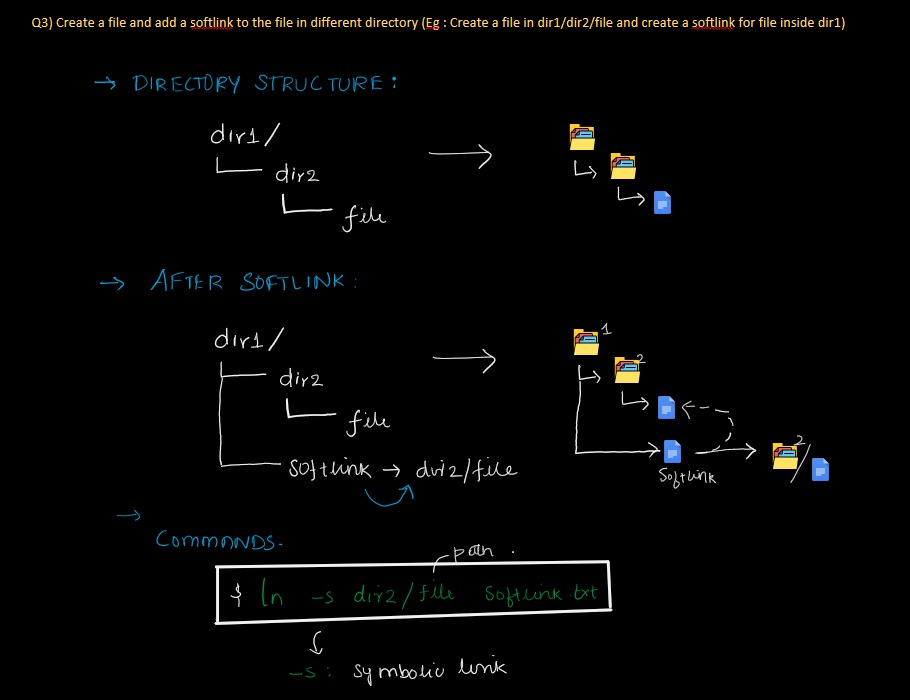 Q3) Create a file and add a softlink to the file in different directory (Eg : Create a file in dir1/dir2/file and create a softlink for file inside dir1)
→ DIRECTORY STRUCTURE :
dir1 /
dir2
file
→ AFTER SOFTLINK :
dir1 /
1
dir2
2
file
softlink → dir2/file
2 /
Softlink
→
COMMANDS -
path .
$ ln -s dir2/file Softlink.txt
-s : symbolic link